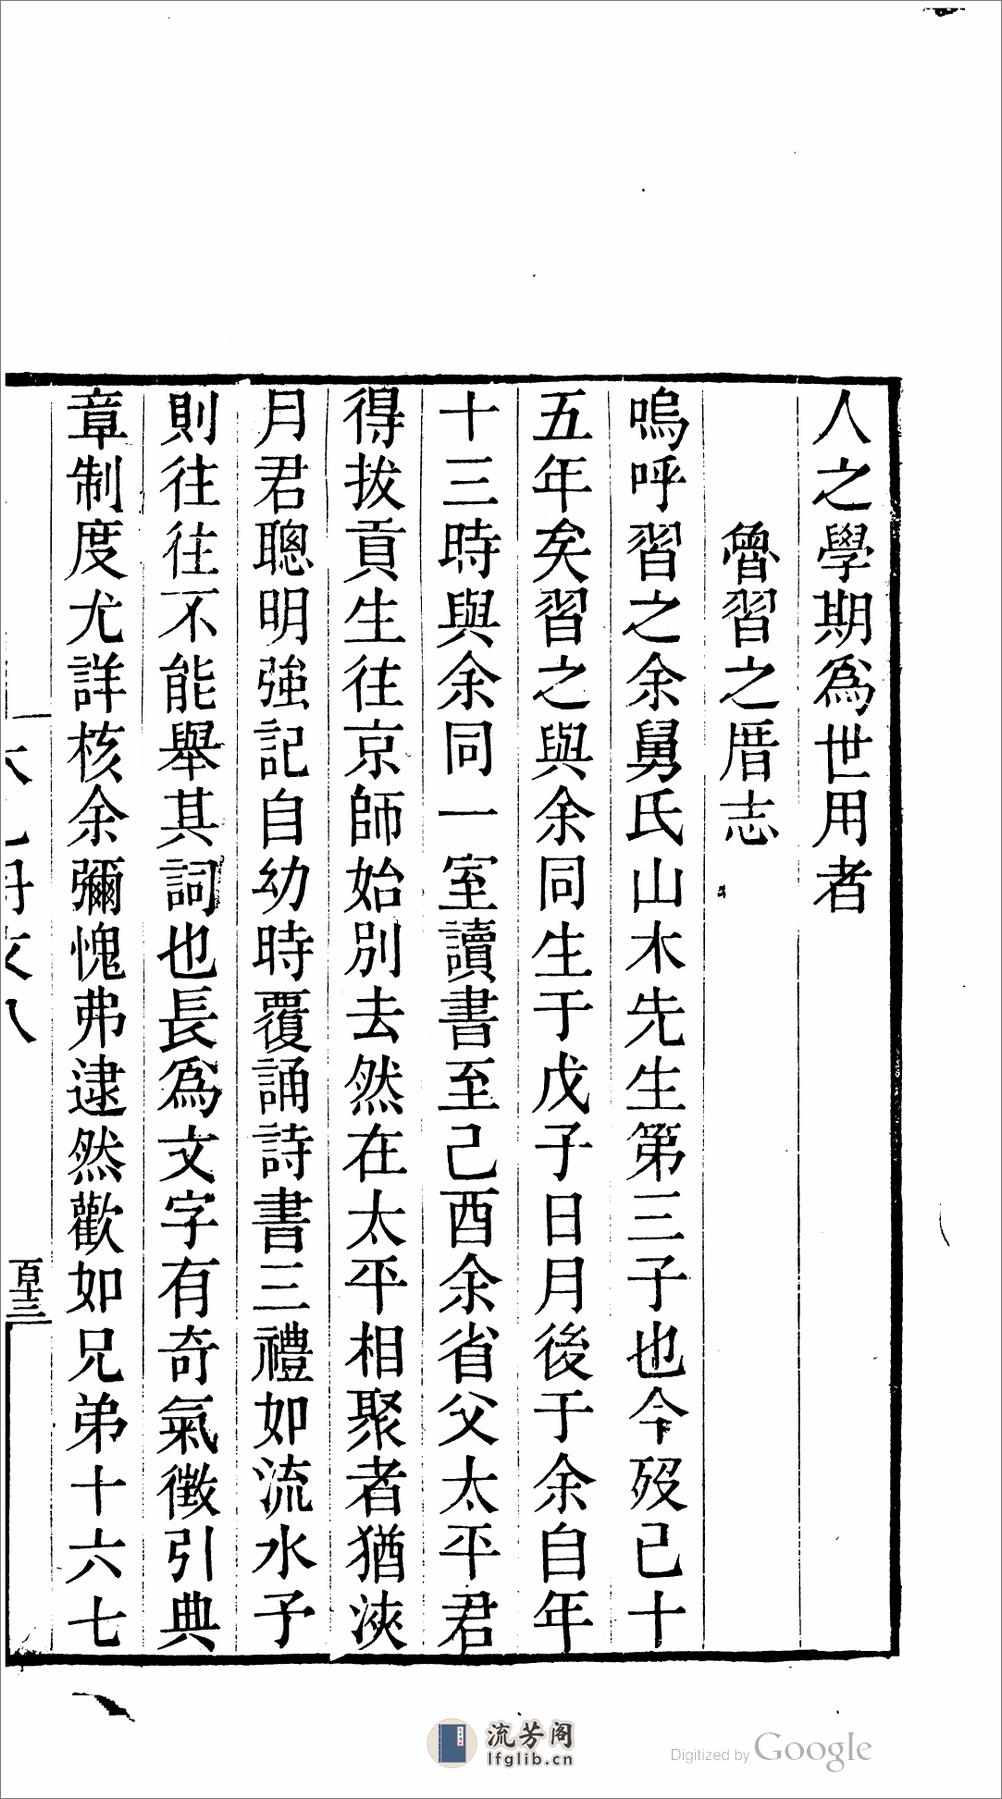 人之學期為世用者
魯習之厝志
嗚呼習之余舅氏山木先生第三子也今歿已十
五年矣習之與余同生于戊子日月後于余自年
十三時與余同一室讀書至己酉余省父太平君
得拔貢生往京師始別去然在太平相聚者猶浹
月君聰明強記自幼時覆誦詩書三禮如流水予
則往往不能舉其詞也長為文字有奇氣徵引典
章制度尤詳核余彌愧弗逮然歡如兄弟十六七
百十三
流芳阁
lfglib.cn
Digitized by Google